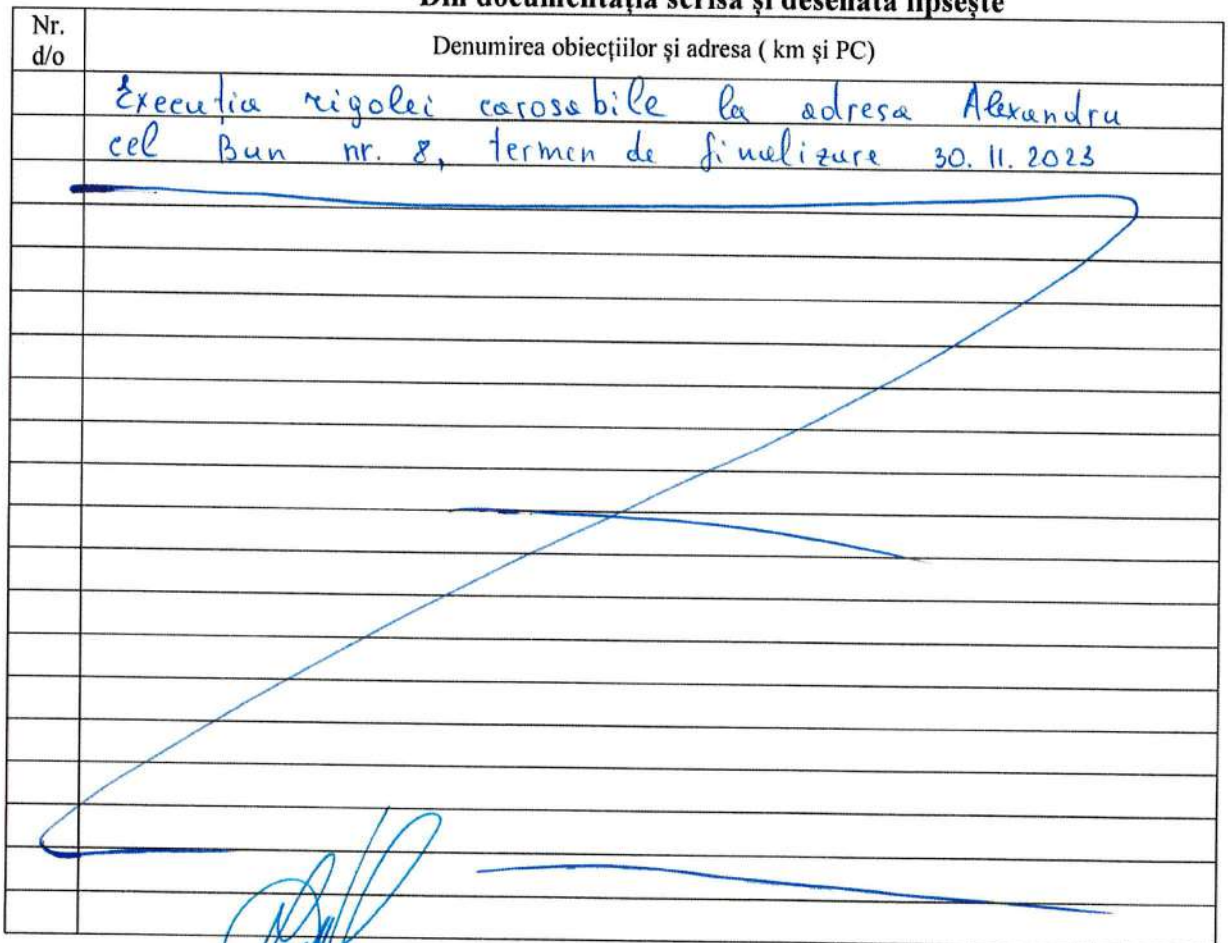 Din documentația scrisă și desenată lipsește
Nr.
d/o
Denumirea obiecțiilor și adresa ( km și PC)
Execuția rigolei carosabile la adresa Alexandru
cel Bun nr. 8, termen de finalizare 30.11.2023